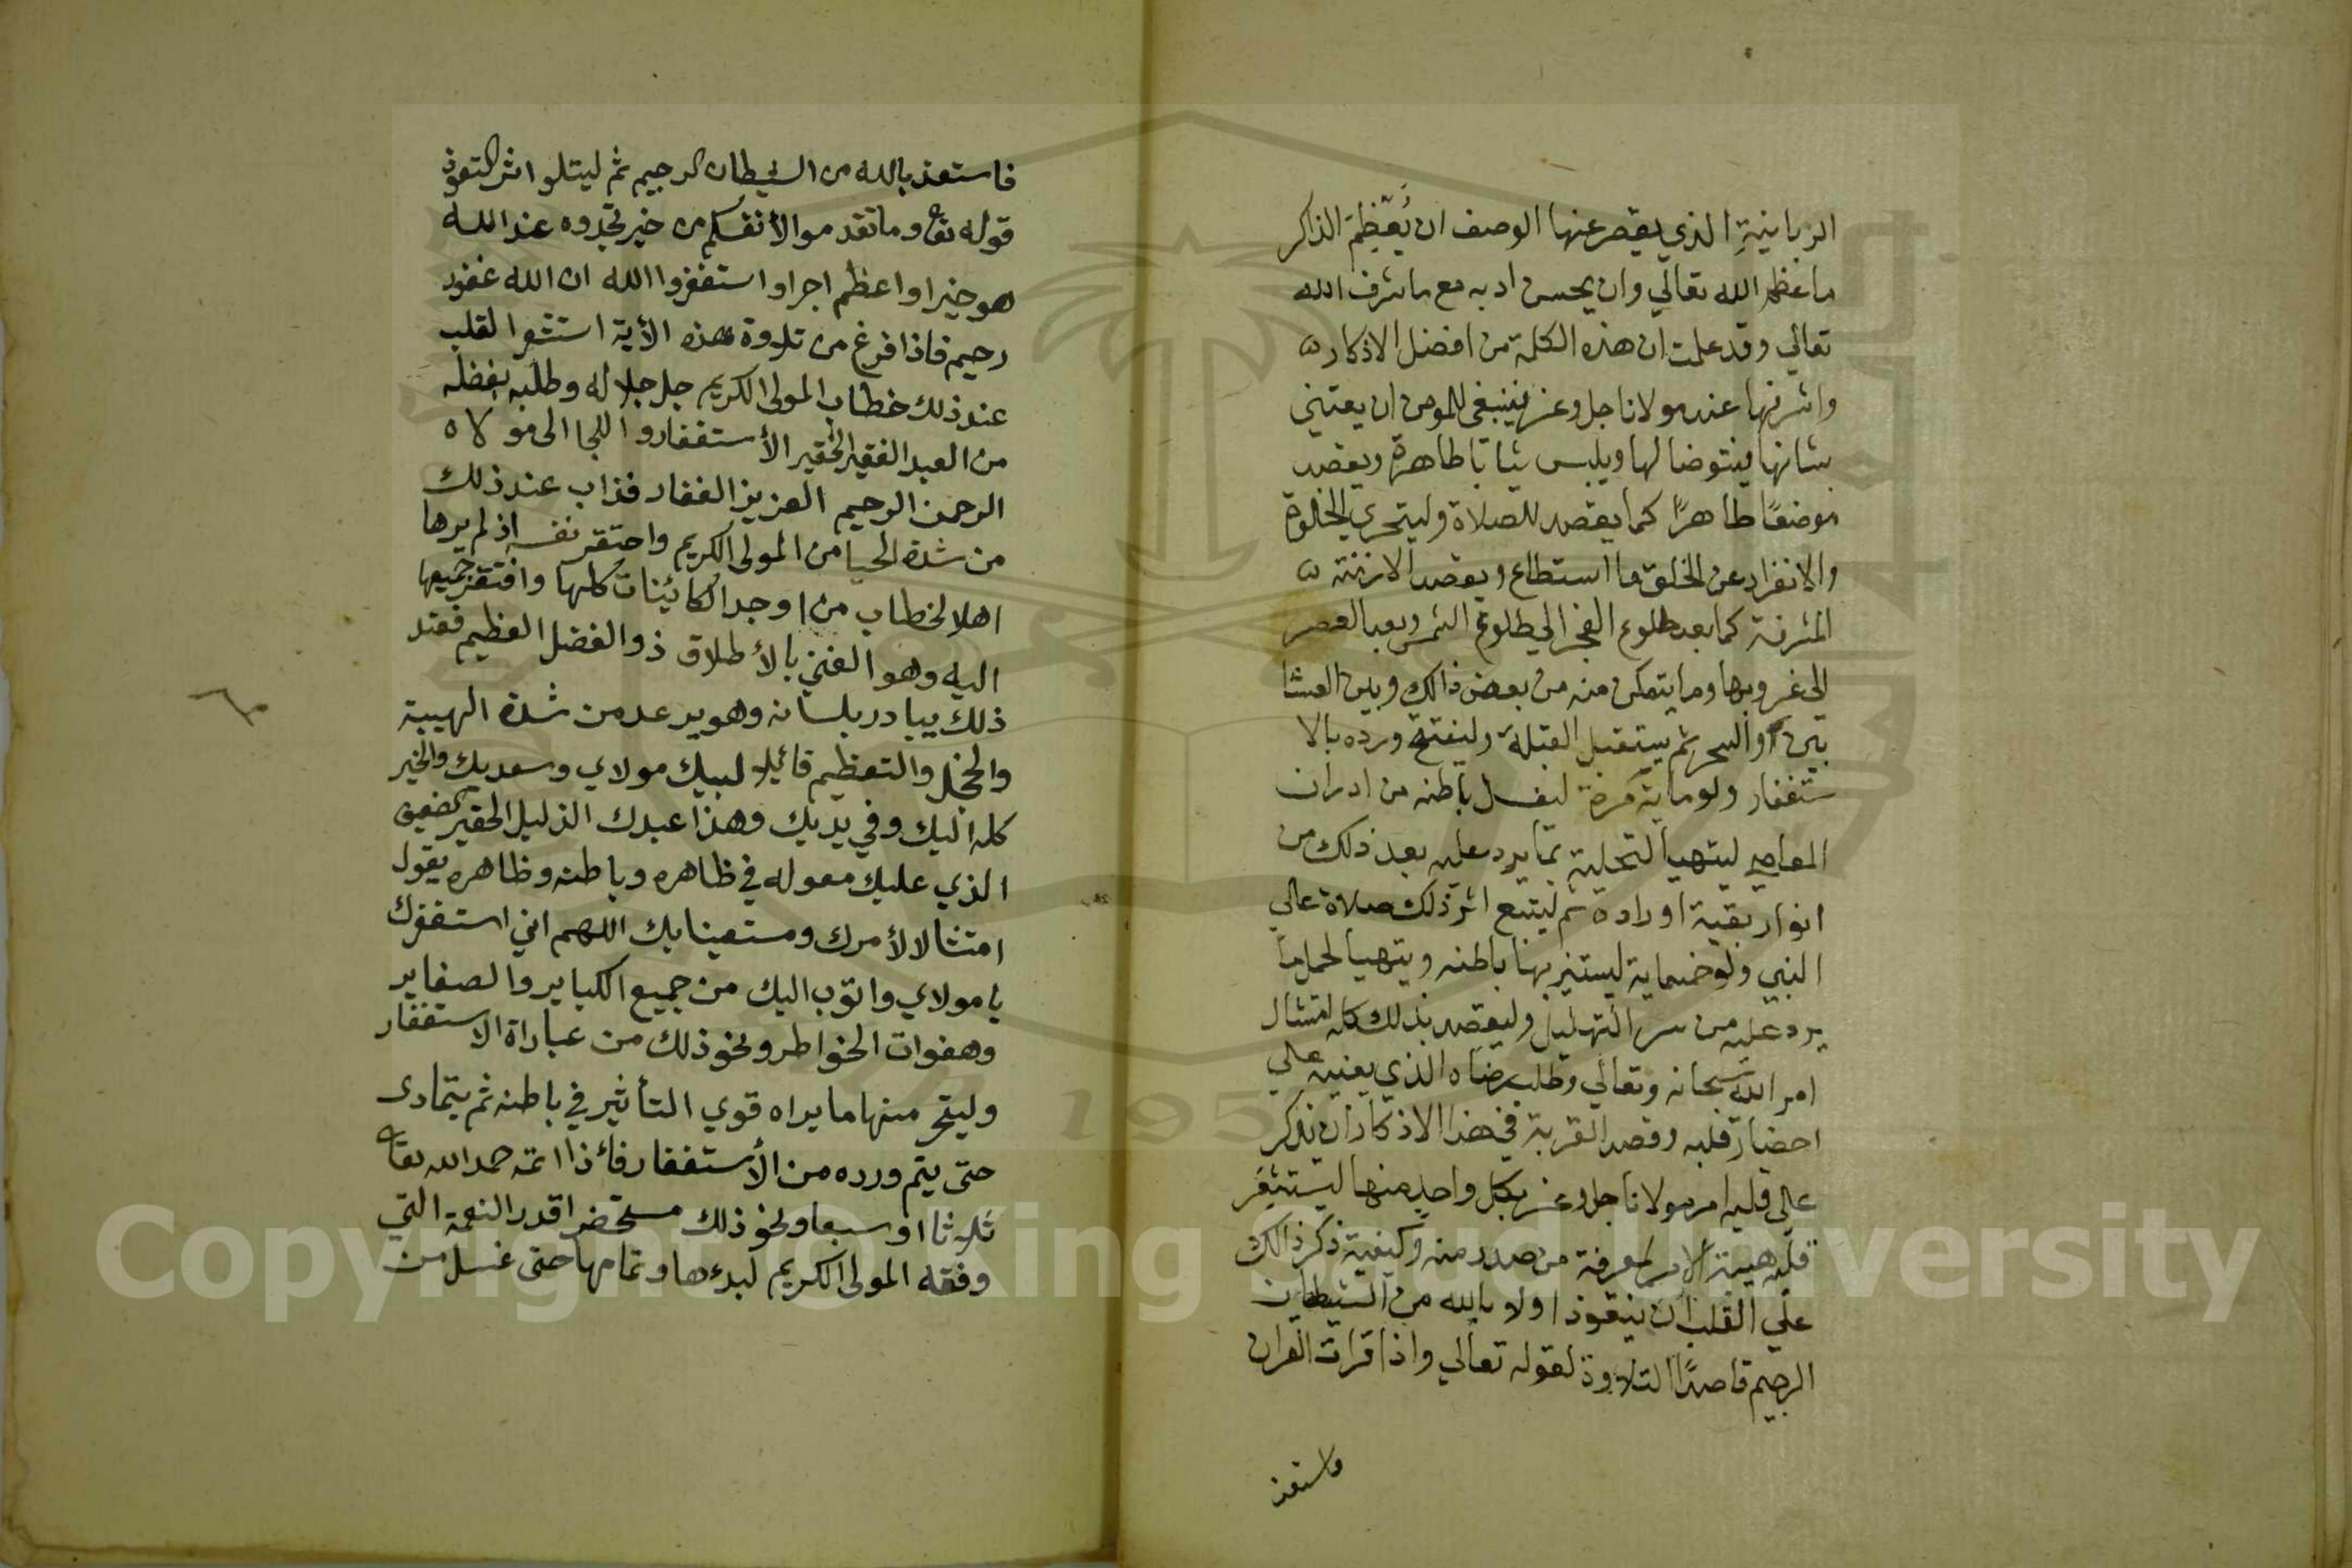 الربانيةِ الذي يقصر عنها الوصف ان يُعَظِّمَ الذاكر
ما عظم الله تعالي وان يحسن ادبه مع ما شرف الله
تعالي وقد علمت ان هذه الكلمة من افضل الاذكار
واشرفها عند مولانا جل وعز فينبغي للمومن ان يعتني
بشانها فيتوضا لها ويلبس ثيابا طاهرة ويقصد
موضعًا طاهرًا كما يقصد للصلاة وليتحري الخلوة
والانفراد عن الخلق ما استطاع ويقصد الازمنة
المشرفة كما بعد طلوع الفجر الي طلوع الشمس وبعد العصر
الي غروبها وما يتمكن منه من بعض ذالك وبين العشا
ئين والسحر ثم يستقبل القبلة وليفتح ورده بالا
ستغفار ولو ماية مرة ليغسل باطنه من ادران
المعاصي ليتهيا لتحلية بما يرد عليه بعد ذلك من
انوار بقية اوراده ثم ليتبع اثر ذلك صلاة علي
النبي ولو خمسماية ليستنير بها باطنه ويتهيا لحمل ما
يرد عليه من سر التهليل وليقصد بذلك كله امتثال
امر الله سبحانه وتعالي وطلب رضاه الذي يعينه علي
احضار قلبه وقصد القربة في هذا الاذكار ان يذكر
علي قلبه امر مولانا جل وعز بكل واحد منها ليستشعر
قلبه هيبة الامر لمعرفة من صدر منه وكيفية ذكر ذالك
علي القلب ان يتعوذ اولا بالله من الشيطان
الرجيم قاصدًا التلاوة لقوله تعالي واذا قرات القران
فاستعذ
فاستعذ بالله من الشيطان الرجيم ثم ليتلو اثر التعوذ
قوله تعا وما تقدموا لأنفسكم من خير تجدوه عند الله
هو خيرا واعظم اجرا واستغفروا الله ان الله غفور
رحيم فاذا فرغ من تلاوة هذه الأية استشعر القلب
عند ذلك خطاب المولى الكريم جل جلاله وطلبه بفضله
من العبد الفقير الحقير الأستغفار واللجا الى مولاه
الرحمن الرحيم العزيز الغفار فذاب عند ذلك
من شدة الحيا من المولى الكريم واحتقر نفسه اذ لم يرها
اهلا لخطاب من اوجد الكائينات كلها وافتقر جميعها
اليه وهو الغني بالأطلاق ذو الفضل العظيم فعند
ذلك يبادر بلسانه وهو يرعد من شدة الهيبة
والخجل والتعظيم قائيلا لبيك مولاي وسعديك والخير
كله اليك وفي يديك وهذا عبدك الذليل الحقير الضعيف
الذي عليك معوله في ظاهره وباطنه وظاهره يقول
امتثالا لأمرك ومستعينا بك اللهم اني استغفرك
يا مولاي واتوب اليك من جميع الكباير والصغاير
وهفوات الخواطر ونحو ذلك من عباراة الاستغفار
وليتحر منها ما يراه قوي التأثير في باطنه ثم يتمادى
حتى يتم ورده من الأستغفار فاءذا اتمه حمد الله تعا
ثلاثا او سبعا ونحو ذلك مستحضرا قدر النعمة التي
وفقه المولى الكريم لبدءها وتمامها حتى غسل من